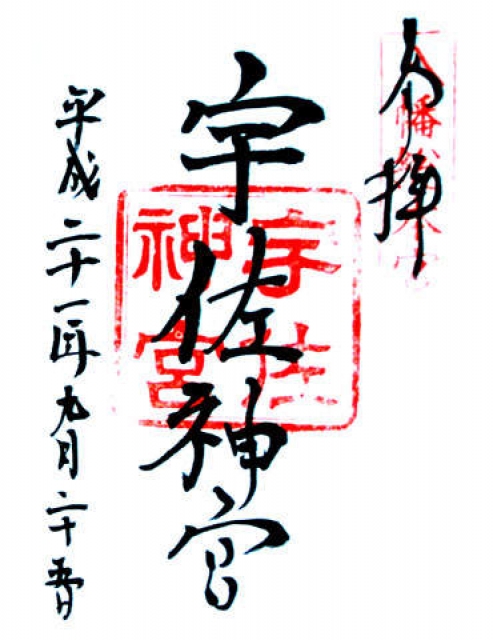 奉拝
宇佐神宮
宇佐
神宮
平成二十一年九月二十五日